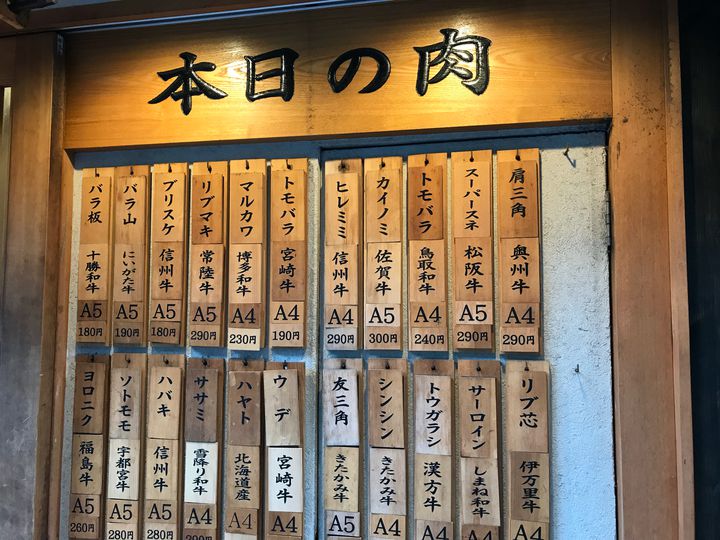 本日の肉
肩三角 奥州牛 A4 290円
スーパースネ 松阪牛 A5 290円
トモバラ 鳥取和牛 A4 240円
カイノミ 佐賀牛 A5 300円
ヒレミミ 信州牛 A4 290円
トモバラ 宮崎牛 A4 190円
マルカワ 博多和牛 A4 230円
リブマキ 常陸牛 A5 290円
ブリスケ 信州牛 A5 180円
バラ山 にいがた牛 A5 190円
バラ板 十勝和牛 A5 180円
リブ芯 伊万里牛 A4
サーロイン しまね和牛 A4
トウガラシ 漢方牛 A4
シンシン きたかみ牛 A4
友三角 きたかみ牛 A5
ウデ 宮崎牛 A4
ハヤト 北海道産 A4
ササミ 雪降り和牛 A4
ハバキ 信州牛 A5 280円
ソトモモ 宇都宮牛 A5 280円
ヨロニク 福島牛 A5 260円